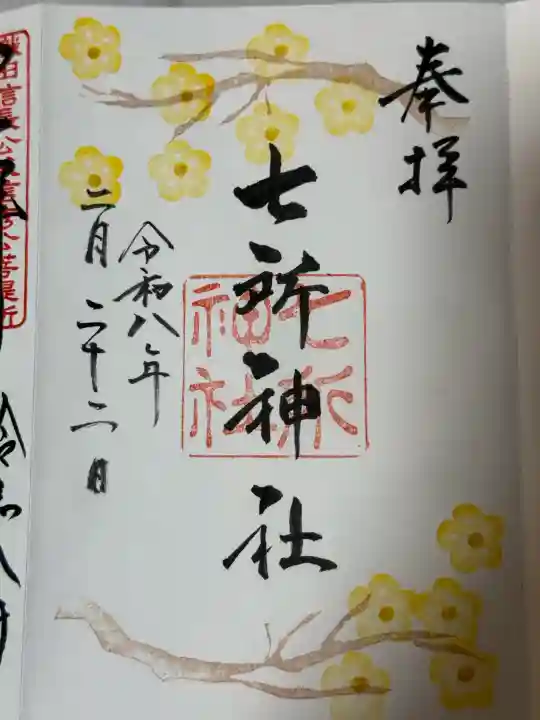 奉拝
七所神社
七所
神社
令和八年
二月二十二日
織田信長公